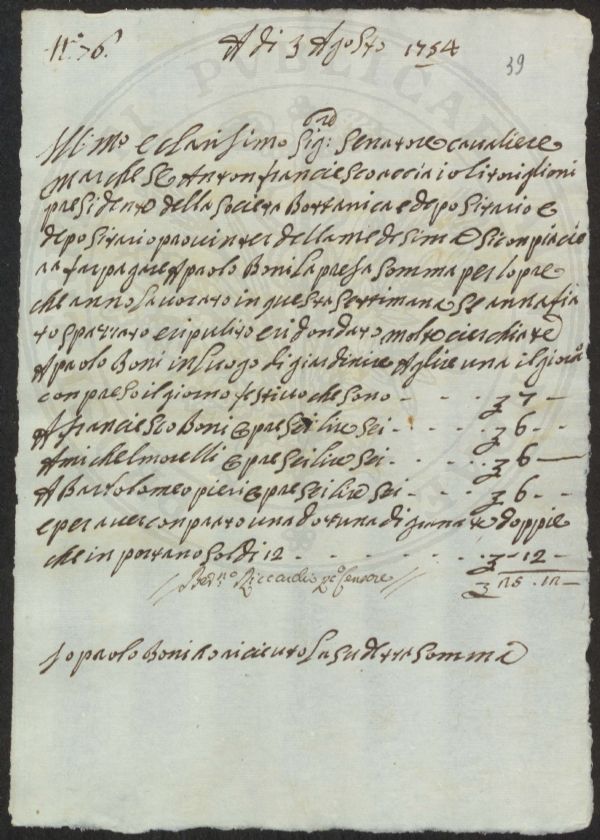 N.º 76. A di 3 Agosto 1754
39
Ill:mo e clarisimo Sig:re Senatore cavaliere
marchese Antonfranciesco acciaioli toriglioni
presidente della Societa Bottanica e depositario e
depositario pro interi della medesima Si conpiacie
ra far pagare A paolo Boni la presa Somma per lopre
che anno lavorato in questa Settimana Se annafia
to spazzato e ripulito e ridondato molte cierchiate
A paolo Boni in luogo di giardiniere A lire una il giorno
conpreso il giorno festivo che sono - - - - ʒ 7 -
A franciesco Boni e pre Sei lire Sei - - - - ʒ 6 - -
A michel morelli e pre Sei lire Sei - - - - ʒ 6 -
A Bartolomeo pieri e pre Sei lire Sei - - - ʒ 6 - -
e per aver conprato una dozzina di granate doppie
che inportano Soldi 12 - - - - - - - ʒ - 12 -
Ber:no Riccardi Censore ʒ 25 . 12 -
Io paolo Boni o riceuto la sudetta Somma